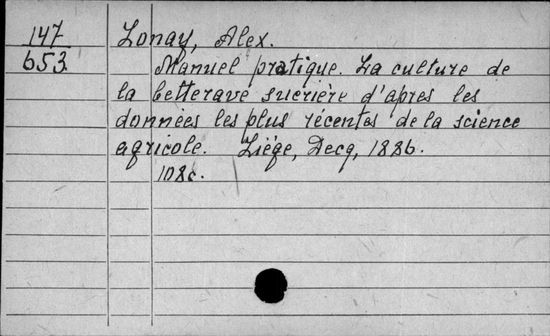 147 Lonay, Alex.
653 Manuel pratique. La culture de
la betterave sucrière d'après les
données les plus récentes de la science
agricole. Liége, Decq, 1886.
108c.